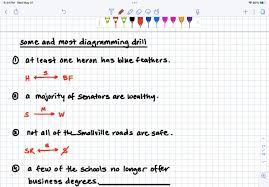 some and most diagramming drill
① at least one heron has blue feathers.
H ←S→ BF
② a majority of senators are wealthy.
S M→ W
③ not all of the Smallville roads are safe.
SR ←S→ S̸
④ a few of the schools no longer offer
business degrees.